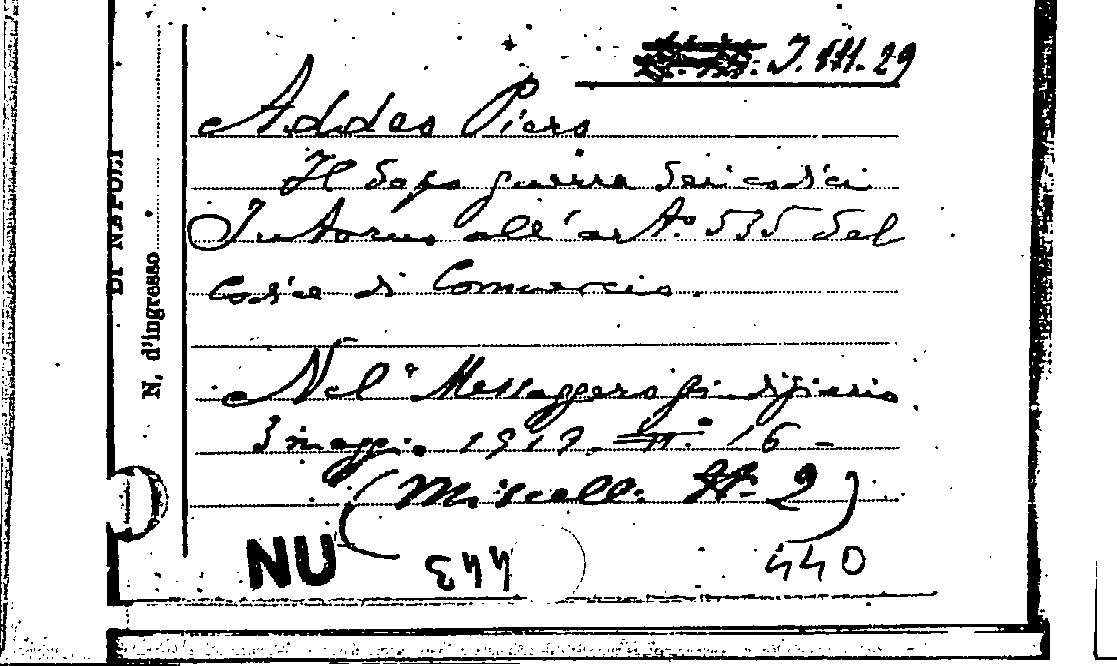 I. VII. 29
Addeo Piero
Il dopo guerra dei codici
Intorno all'art.º 535 del
Codice di Commercio.
Nel "Messaggero giudiziario
3 maggio 1919 - n. 16 -
(Miscell. A. 2)
NU 344 440
DI NAPOLI
N. d'ingresso